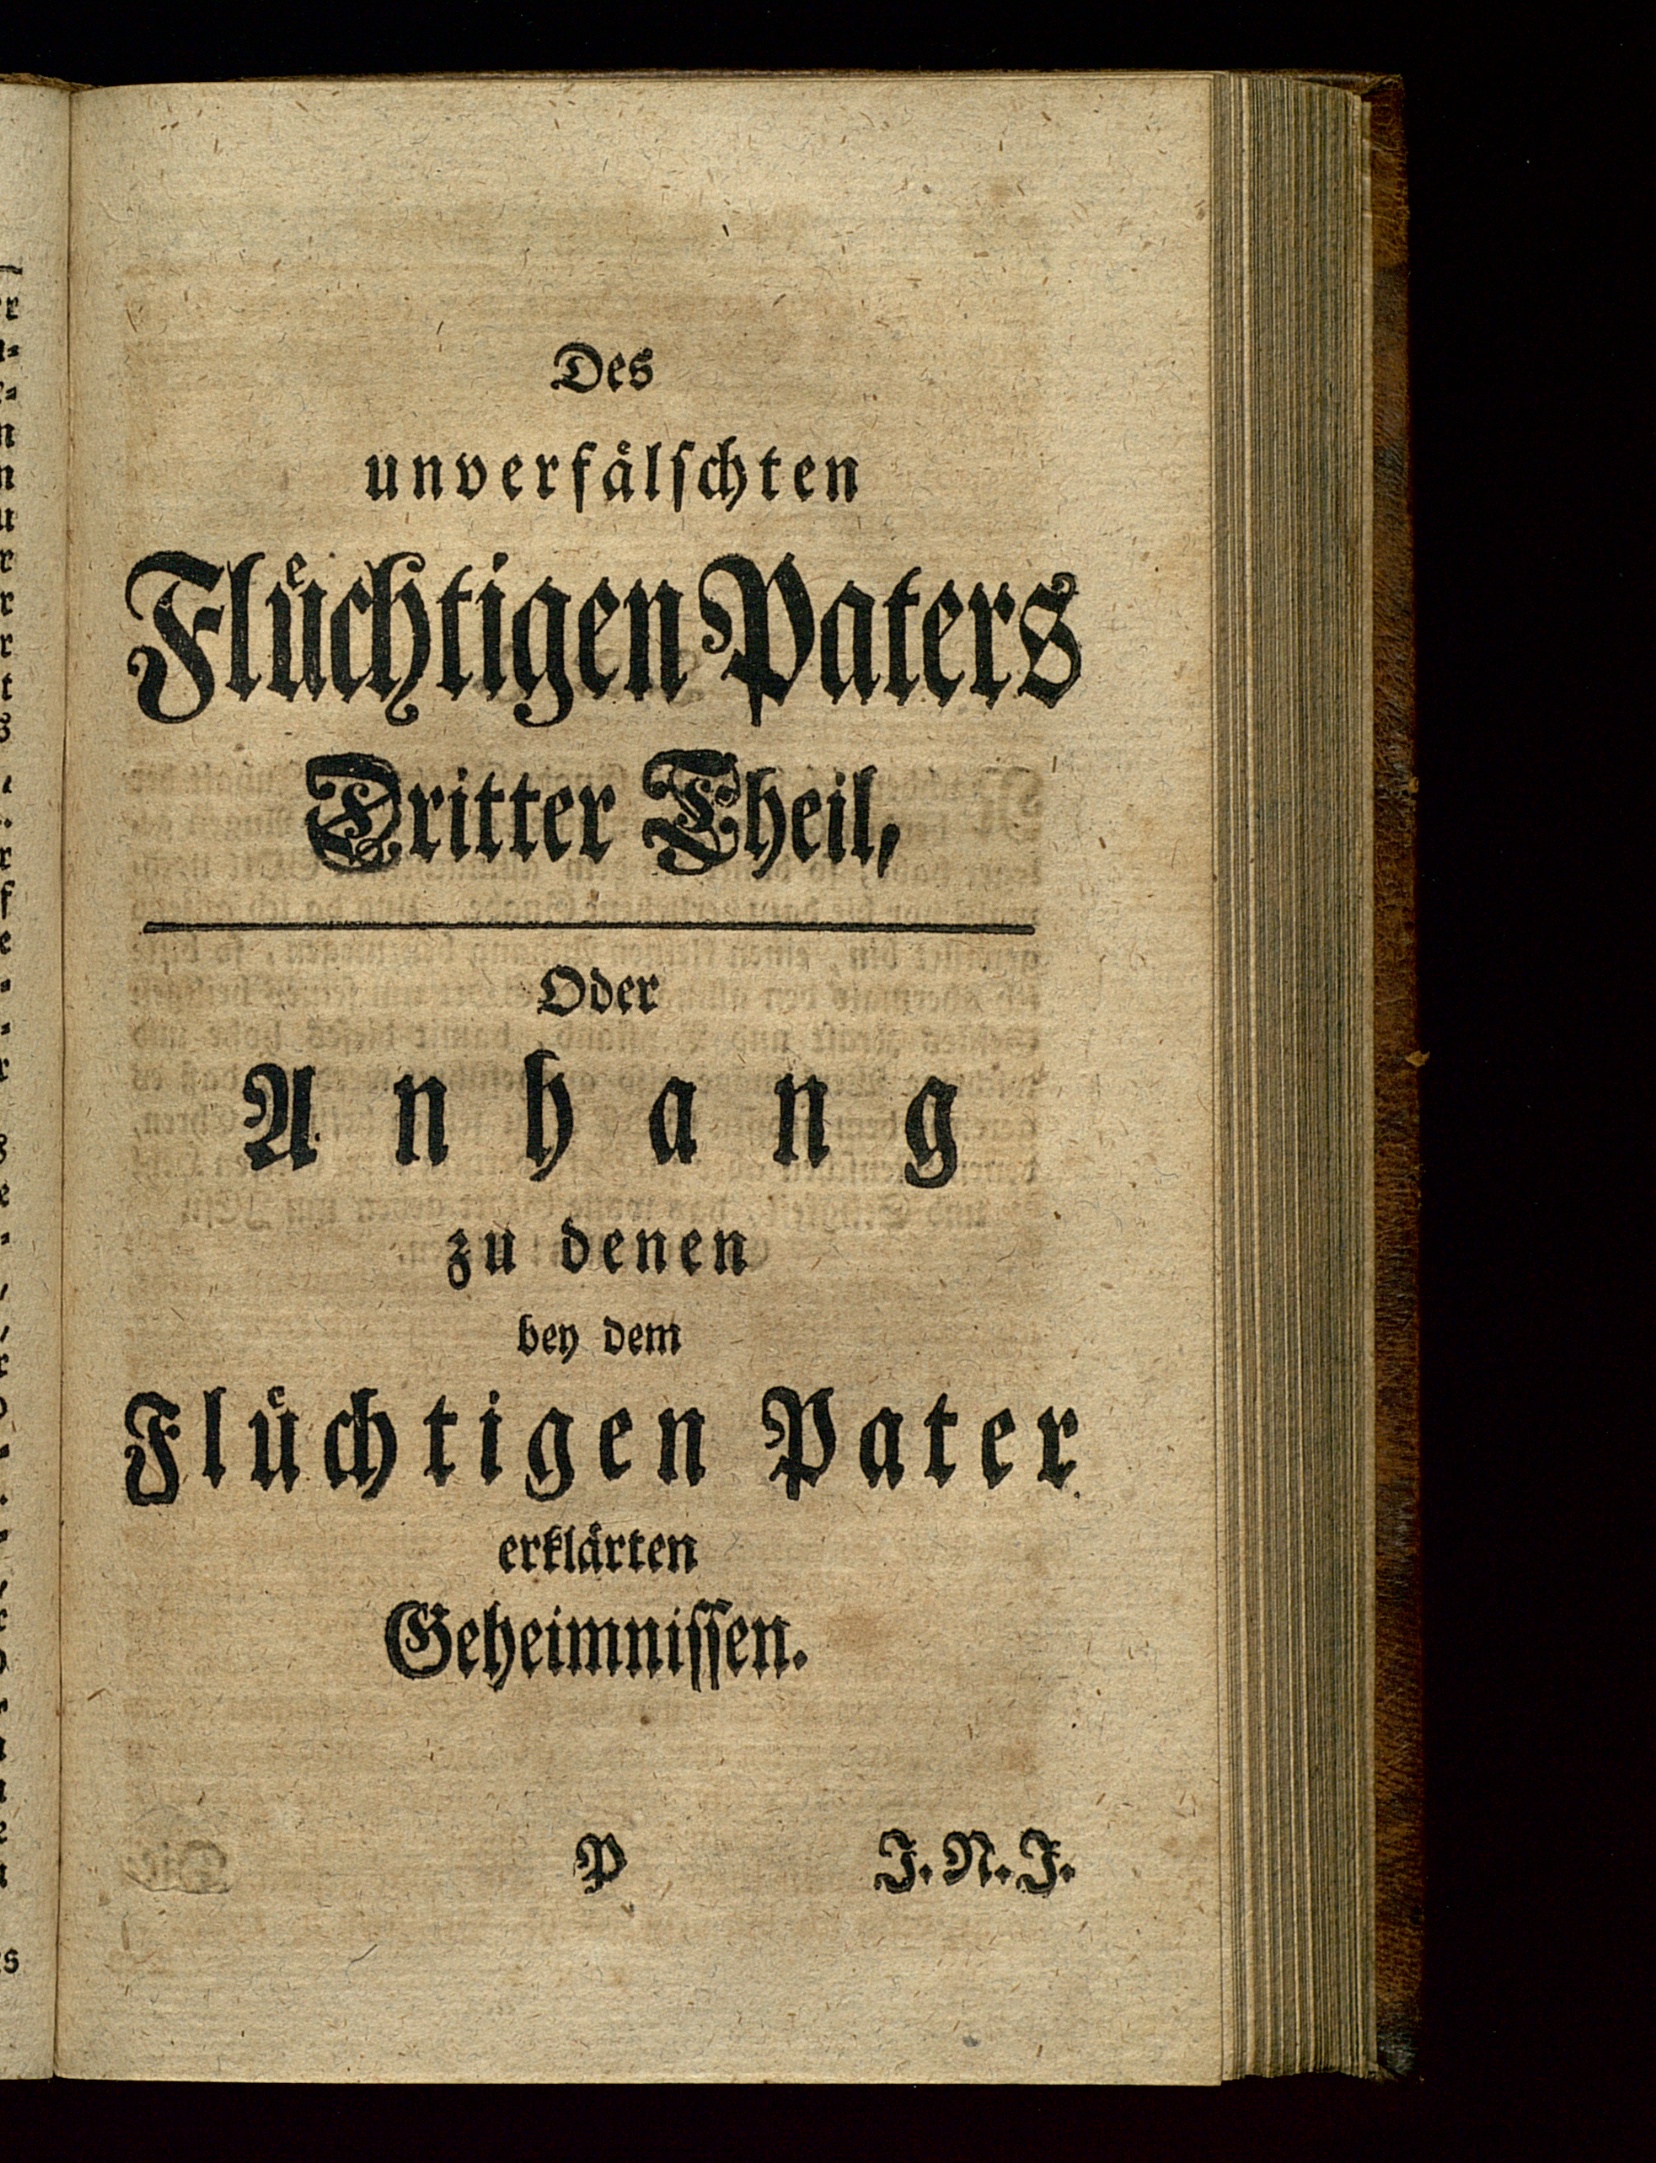 Des
unverfaͤlſchten
Fluͤchtigen Paters
Dritter Theil,
Oder
Anhang
zu denen
bey dem
Fluͤchtigen Pater
erklaͤrten
Geheimniſſen.
P
J. N. J.